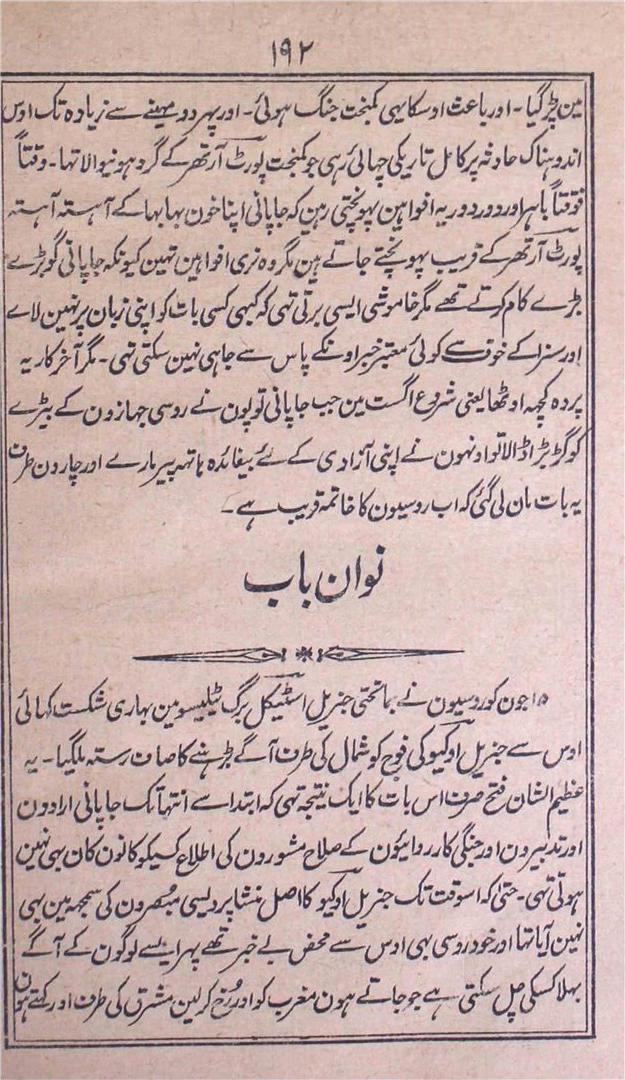 ۱۹۲
مین پڑگیا۔ اور باعث اوسکا یہی کمبخت جنگ ہوئی۔ اور پہر دو مہینے سے زیادہ تک اوس
اندوہناک حادثہ پر کامل تاریکی چہائی رہی جو کمبخت پورٹ آرتھر کے گرد ہونیوالا تہا۔ وقتاً
فوقتاً باہر اور دور دور یہ افواہین پہونچتی رہین کہ جاپانی اپنا خون بہا بہا کے آہستہ آہستہ
پورٹ آرتھر کے قریب پہونچتے جاتے ہین مگر وہ نری افواہین تہین کیونکہ جاپانی گو بڑے
بڑے کام کرتے تھے مگر خاموشی ایسی برتی تہی کہ کبہی کسی بات کو اپنی زبان پر نہین لائے
اور سنزا کے خوف سے کوئی معتبر خبر اونکے پاس سے جاہی نہین سکتی تہی۔ مگر آخر کار یہ
پردہ کچہہ اوٹھا یعنی شروع اگست مین جب جاپانی توپون نے روسی جہازون کے بیڑے
کو گڑبڑا ڈالا تو اونہون نے اپنی آزادی کے لئے بیفائدہ ہاتہہ پیر مارے اور چارون طرف
یہ بات مان لی گئی کہ اب روسیون کا خاتمہ قریب ہے۔
نوان باب
۱۵ جون کو روسیون نے بماتحتی جنریل اسٹیکل برگ ٹیلیسو مین بہاری شکست کہائی
اوس سے جنریل اوکیو کی فوج کو شمال کی طرف آگے بڑہنے کا صاف رستہ ملگیا۔ یہ
عظیم الشان فتح صرف اس بات کا ایک نتیجہ تہی کہ ابتدا سے انتہا تک جاپانی ارادون
اور تدبیرون اور جنگی کارروائیون کے صلاح مشورون کی اطلاع کسیکو کانون کان بہی نہین
ہوتی تہی۔ حتیٰ کہ اسوقت تک جنریل اوکیو کا اصل منشا پردیسی مبصرون کی سمجہہ مین بہی
نہین آیا تہا اور خود روسی بہی اوس سے محض بے خبر تھے پہر ایسے لوگون کے آگے
بہلا کسکی چل سکتی ہے جو جاتے ہون مغرب کو اور رُخ کرلین مشرق کی طرف اور کہتے ہون